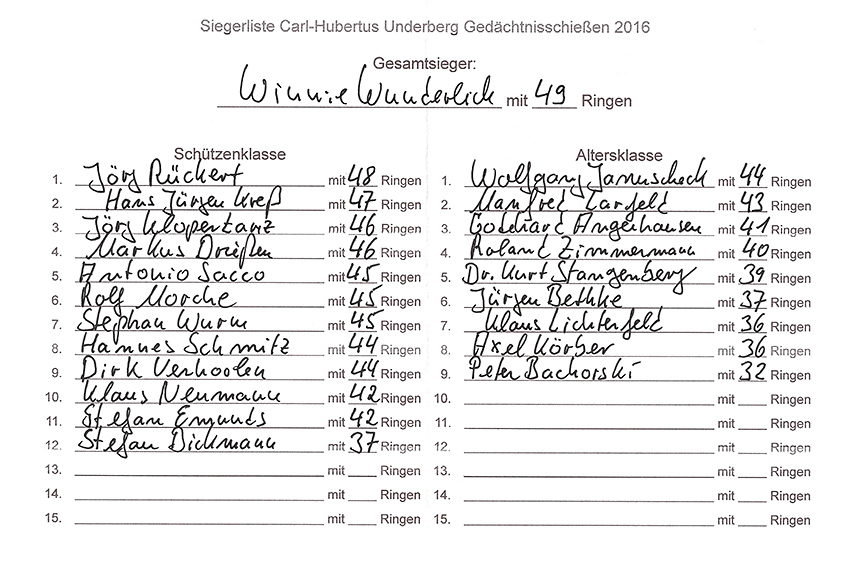 Siegerliste Carl-Hubertus Underberg Gedächtnisschießen 2016
Gesamtsieger:
Winnie Wunderlich mit 49 Ringen
Schützenklasse
1. Jörg Rückert mit 48 Ringen
2. Hans Jürgen Kreß mit 47 Ringen
3. Jörg Klopertanz mit 46 Ringen
4. Markus Drießen mit 46 Ringen
5. Antonio Sacco mit 45 Ringen
6. Rolf Morche mit 45 Ringen
7. Stephan Wurm mit 45 Ringen
8. Hannes Schmitz mit 44 Ringen
9. Dirk Verhoolen mit 44 Ringen
10. Klaus Neumann mit 42 Ringen
11. Stefan Emunds mit 42 Ringen
12. Stefan Dickmann mit 37 Ringen
13. mit ___ Ringen
14. mit ___ Ringen
15. mit ___ Ringen
Altersklasse
1. Wolfgang Januscheck mit 44 Ringen
2. Manfred Larfeld mit 43 Ringen
3. Gotthard Angerhausen mit 41 Ringen
4. Roland Zimmermann mit 40 Ringen
5. Dr. Kurt Stangenberg mit 39 Ringen
6. Jürgen Bethke mit 37 Ringen
7. Klaus Lichterfeld mit 36 Ringen
8. Axel Körber mit 36 Ringen
9. Peter Bachorski mit 32 Ringen
10. mit ___ Ringen
11. mit ___ Ringen
12. mit ___ Ringen
13. mit ___ Ringen
14. mit ___ Ringen
15. mit ___ Ringen